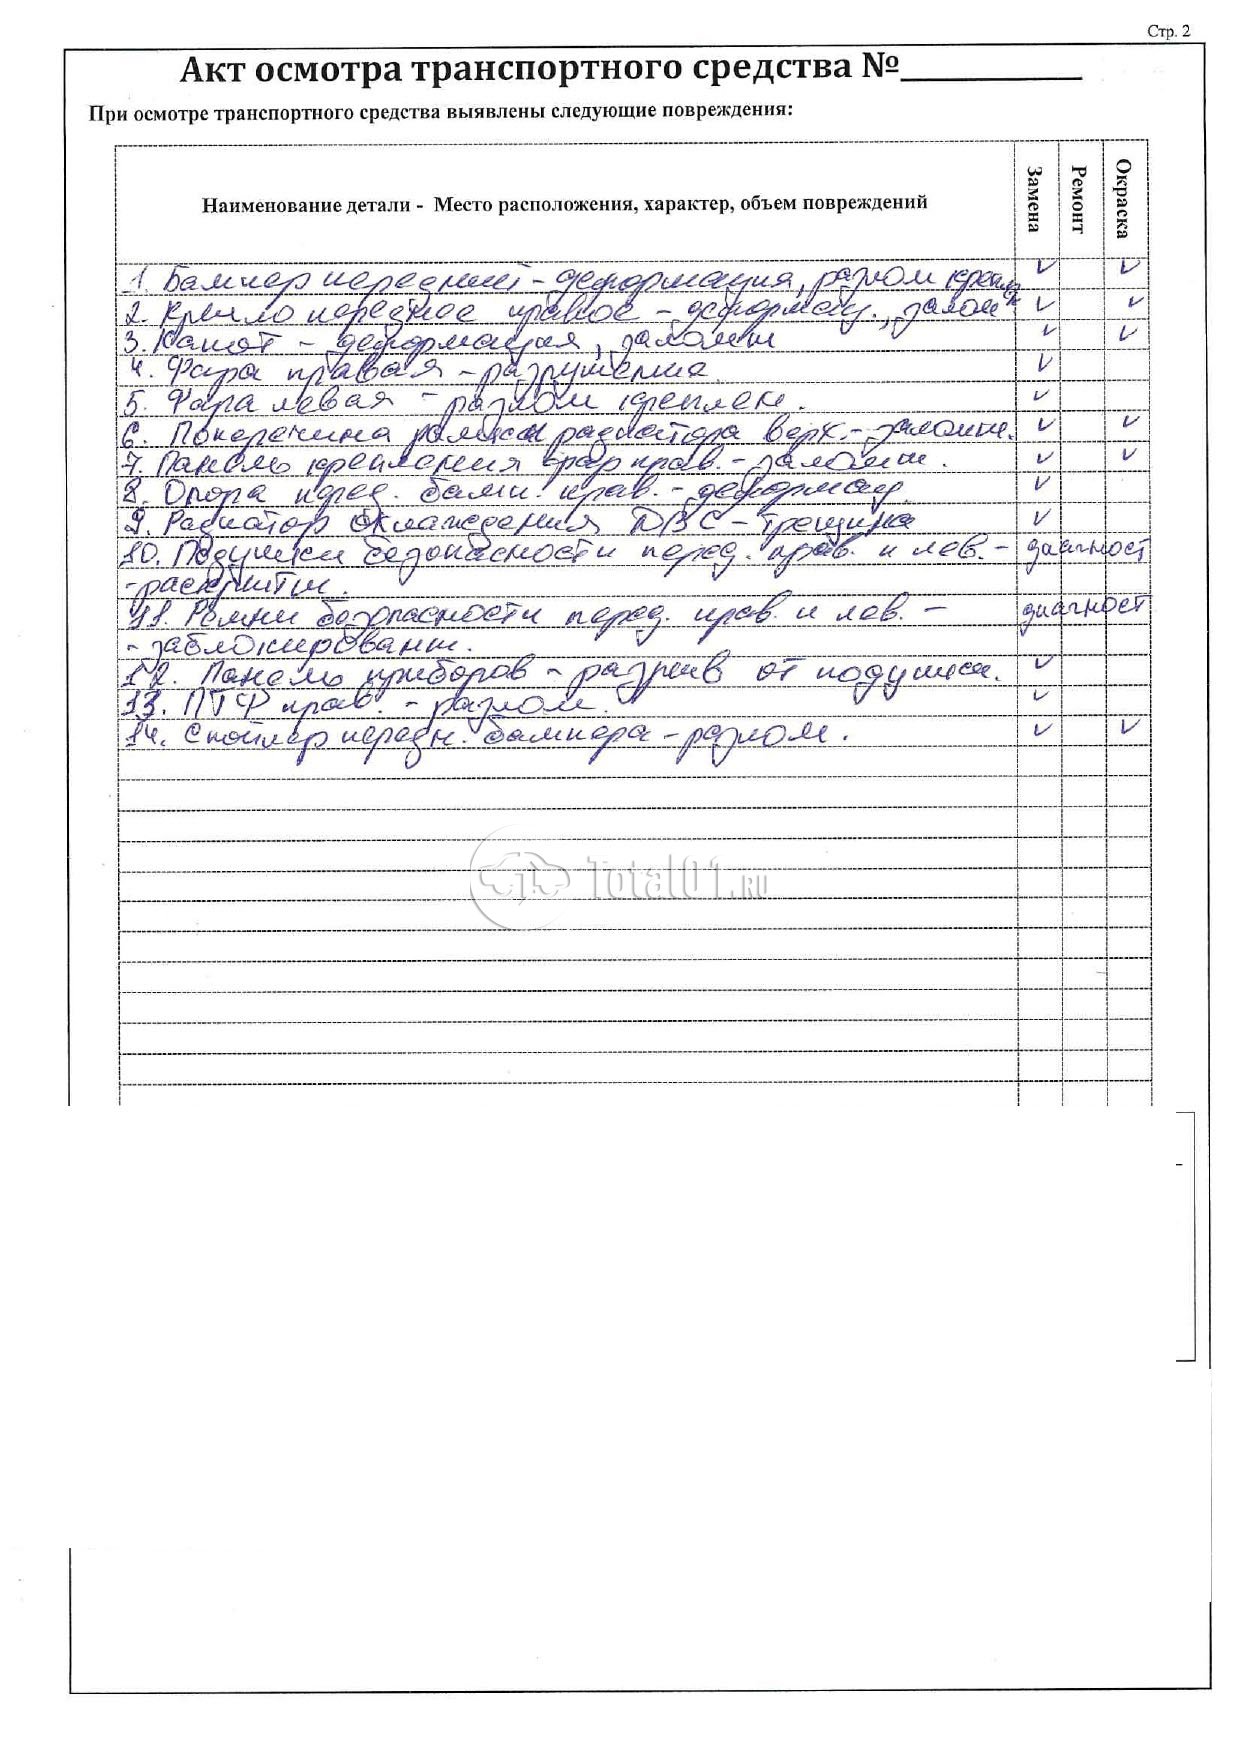 Стр. 2
Акт осмотра транспортного средства №
При осмотре транспортного средства выявлены следующие повреждения:
Наименование детали - Место расположения, характер, объем повреждений
Замена
Ремонт
Окраска
1. Бампер передний - деформация, разлом крепл.
2. Крыло переднее правое - деформац., залом
3. Капот - деформация, заломы
4. Фара правая - разрушена.
5. Фара левая - разлом креплен.
6. Поперечина рамки радиатора верх. - заломы.
7. Панель крепления фар прав. - заломы.
8. Опора перед. бамп. прав. - деформац.
9. Радиатор охлаждения ДВС - трещина
10. Подушки безопасности перед. прав. и лев. - диагност
- раскрыты.
11. Ремни безопасности перед. прав. и лев. - диагност
- заблокированы.
12. Панель приборов - разрыв от подушки.
13. ПТФ прав. - разлом.
14. Спойлер передн. бампера - разлом.
Total01.RU